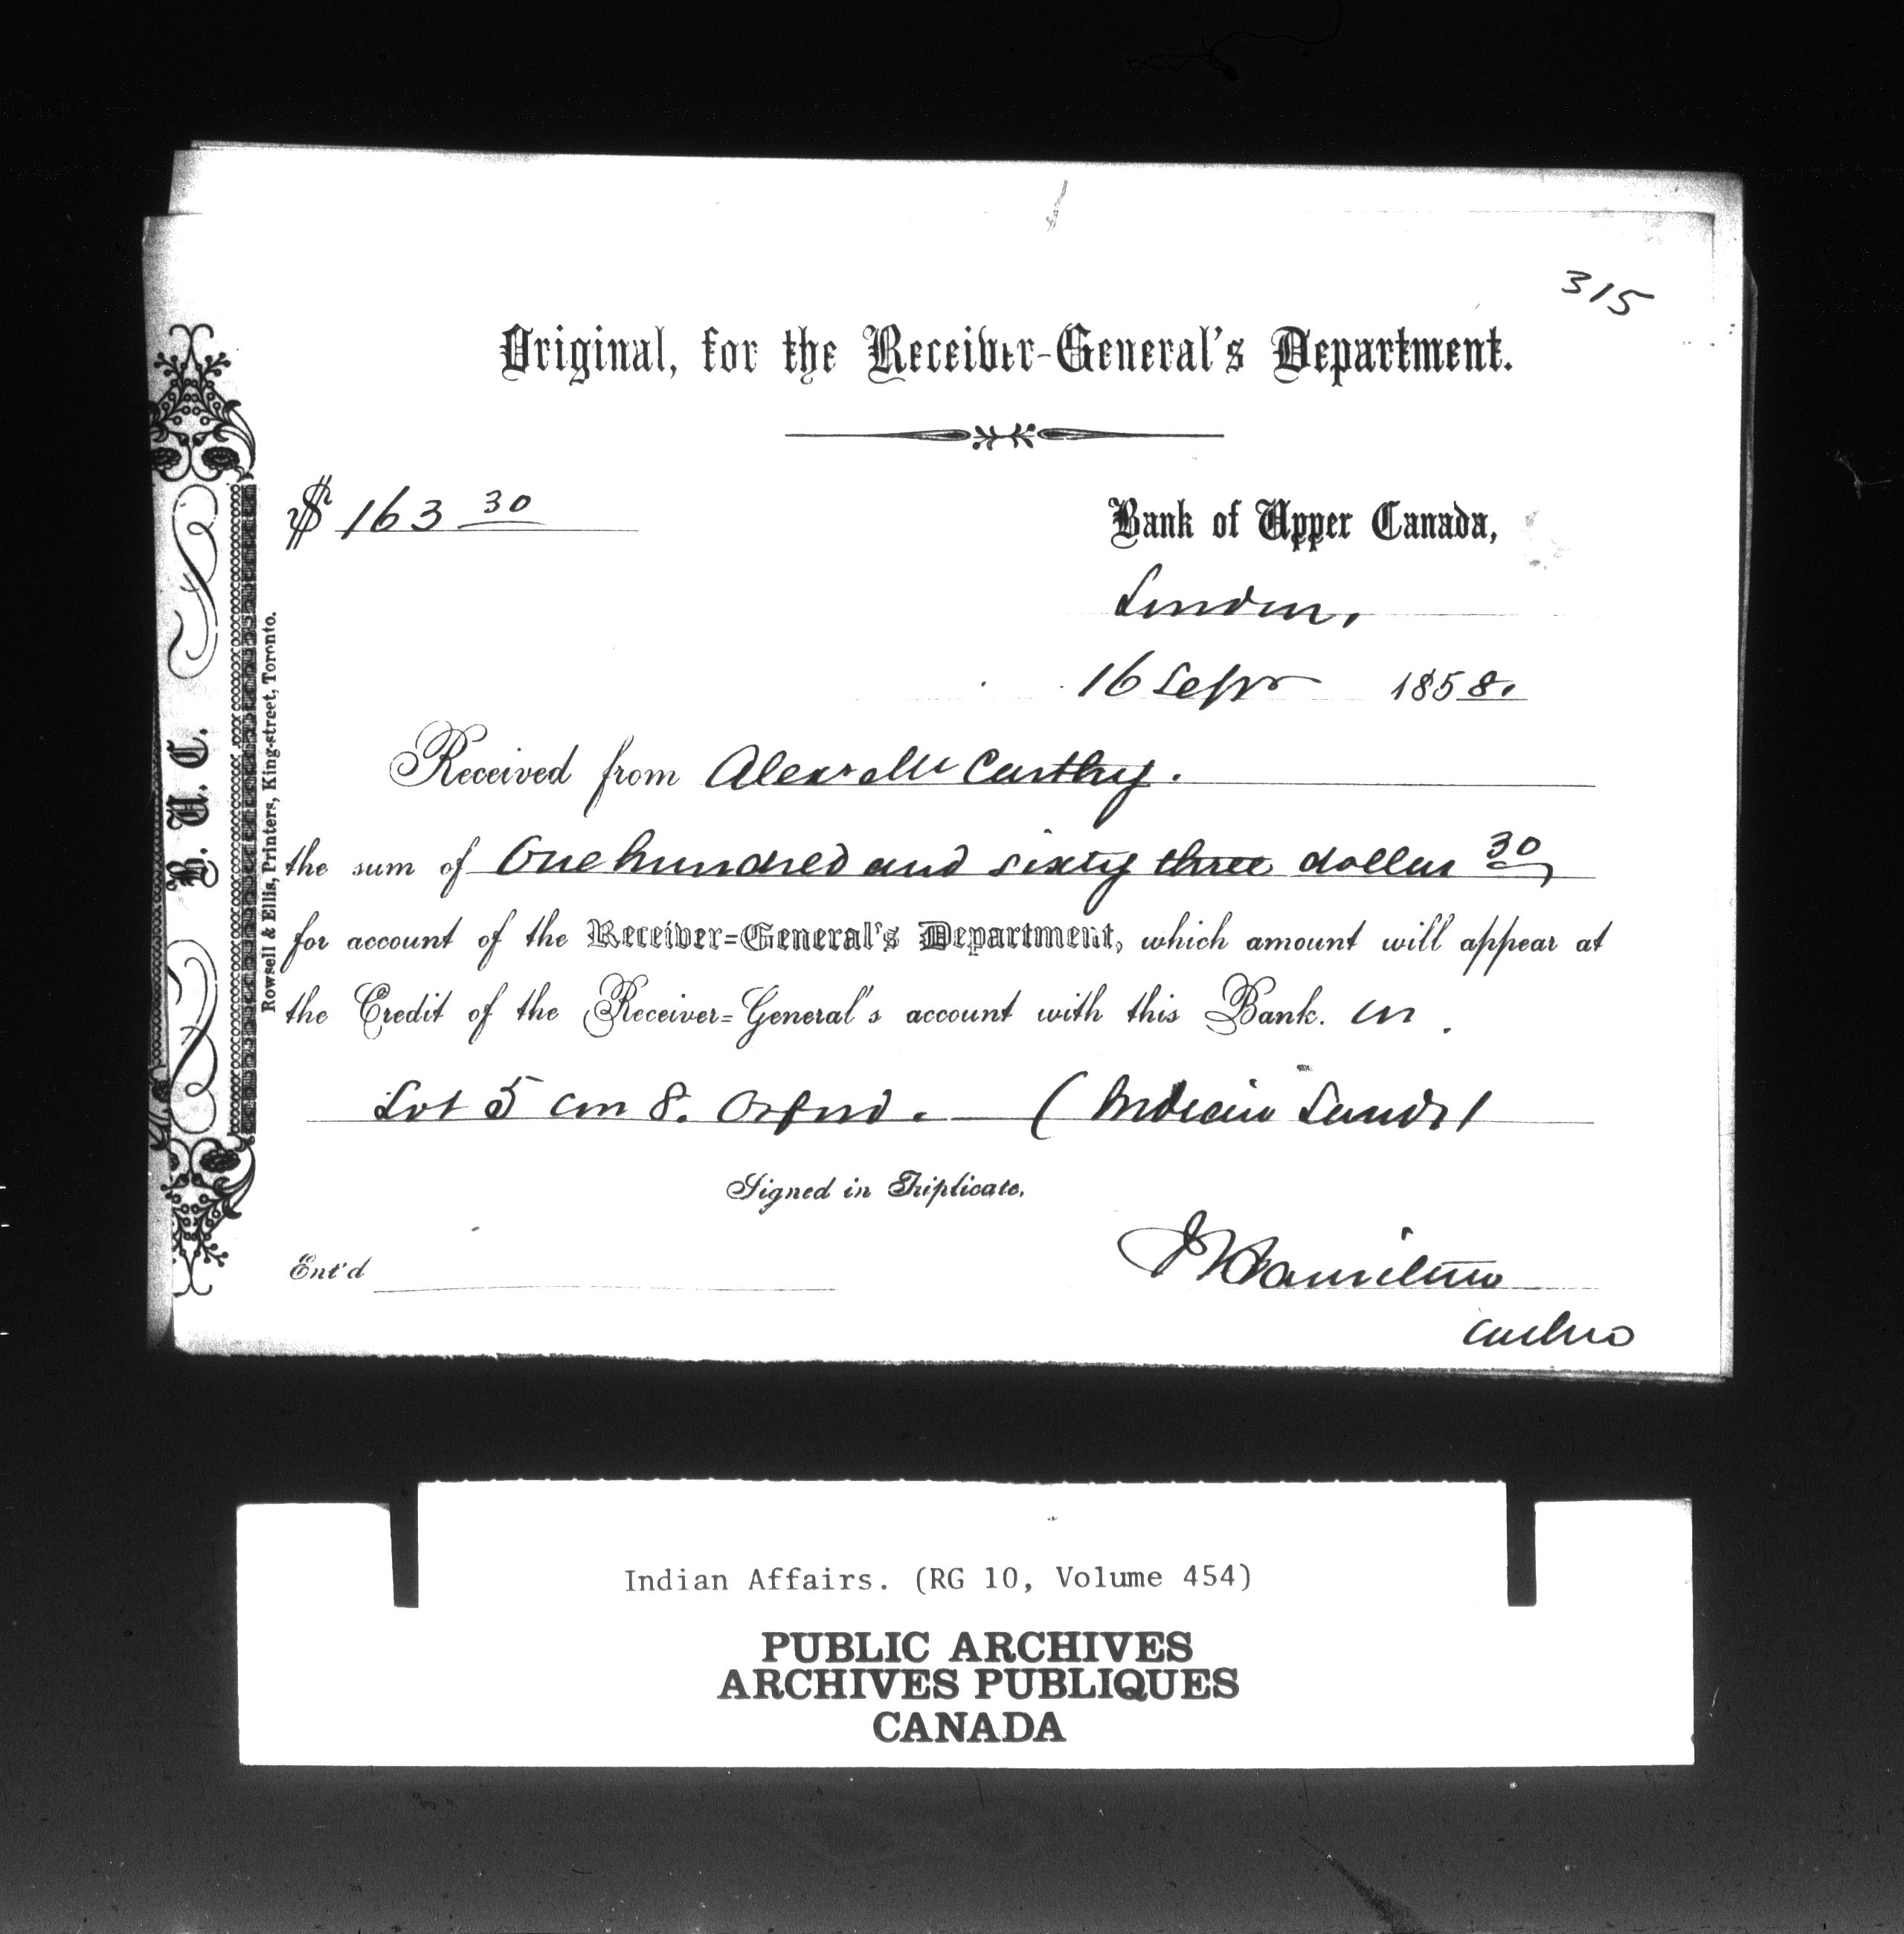 315
Original, for the Receiver-General's Department.
$ 163 30
Bank of Upper Canada,
London,
16 Sepr 1858.
Received from Alexr McCarthy.
the sum of One hundred and sixty three dollars 30
for account of the Receiver=General's Department, which amount will appear at
the Credit of the Receiver=General's account with this Bank. on.
Lot 5 con 8. Orford. — (Indian Lands)
Signed in Triplicate.
Ent'd
Hamilton
B. U. C.
Rowsell & Ellis, Printers, King-street, Toronto.
Indian Affairs. (RG 10, Volume 454)
PUBLIC ARCHIVES
ARCHIVES PUBLIQUES
CANADA